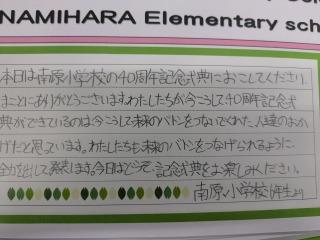 NAMIHARA Elementary sch
本日は南原小学校の40周年記念式典におこしくださり、
まことにありがとうございます。わたしたちが今こうして40周年記念式
典ができているのは今こうして未来のバトンをつないでくれた人達のおか
げだと思っています。わたしたちも未来のバトンをつなげられるように
全力を出して発表します。今日はどうぞ、記念式典をお楽しみください。
南原小学校 6年生より